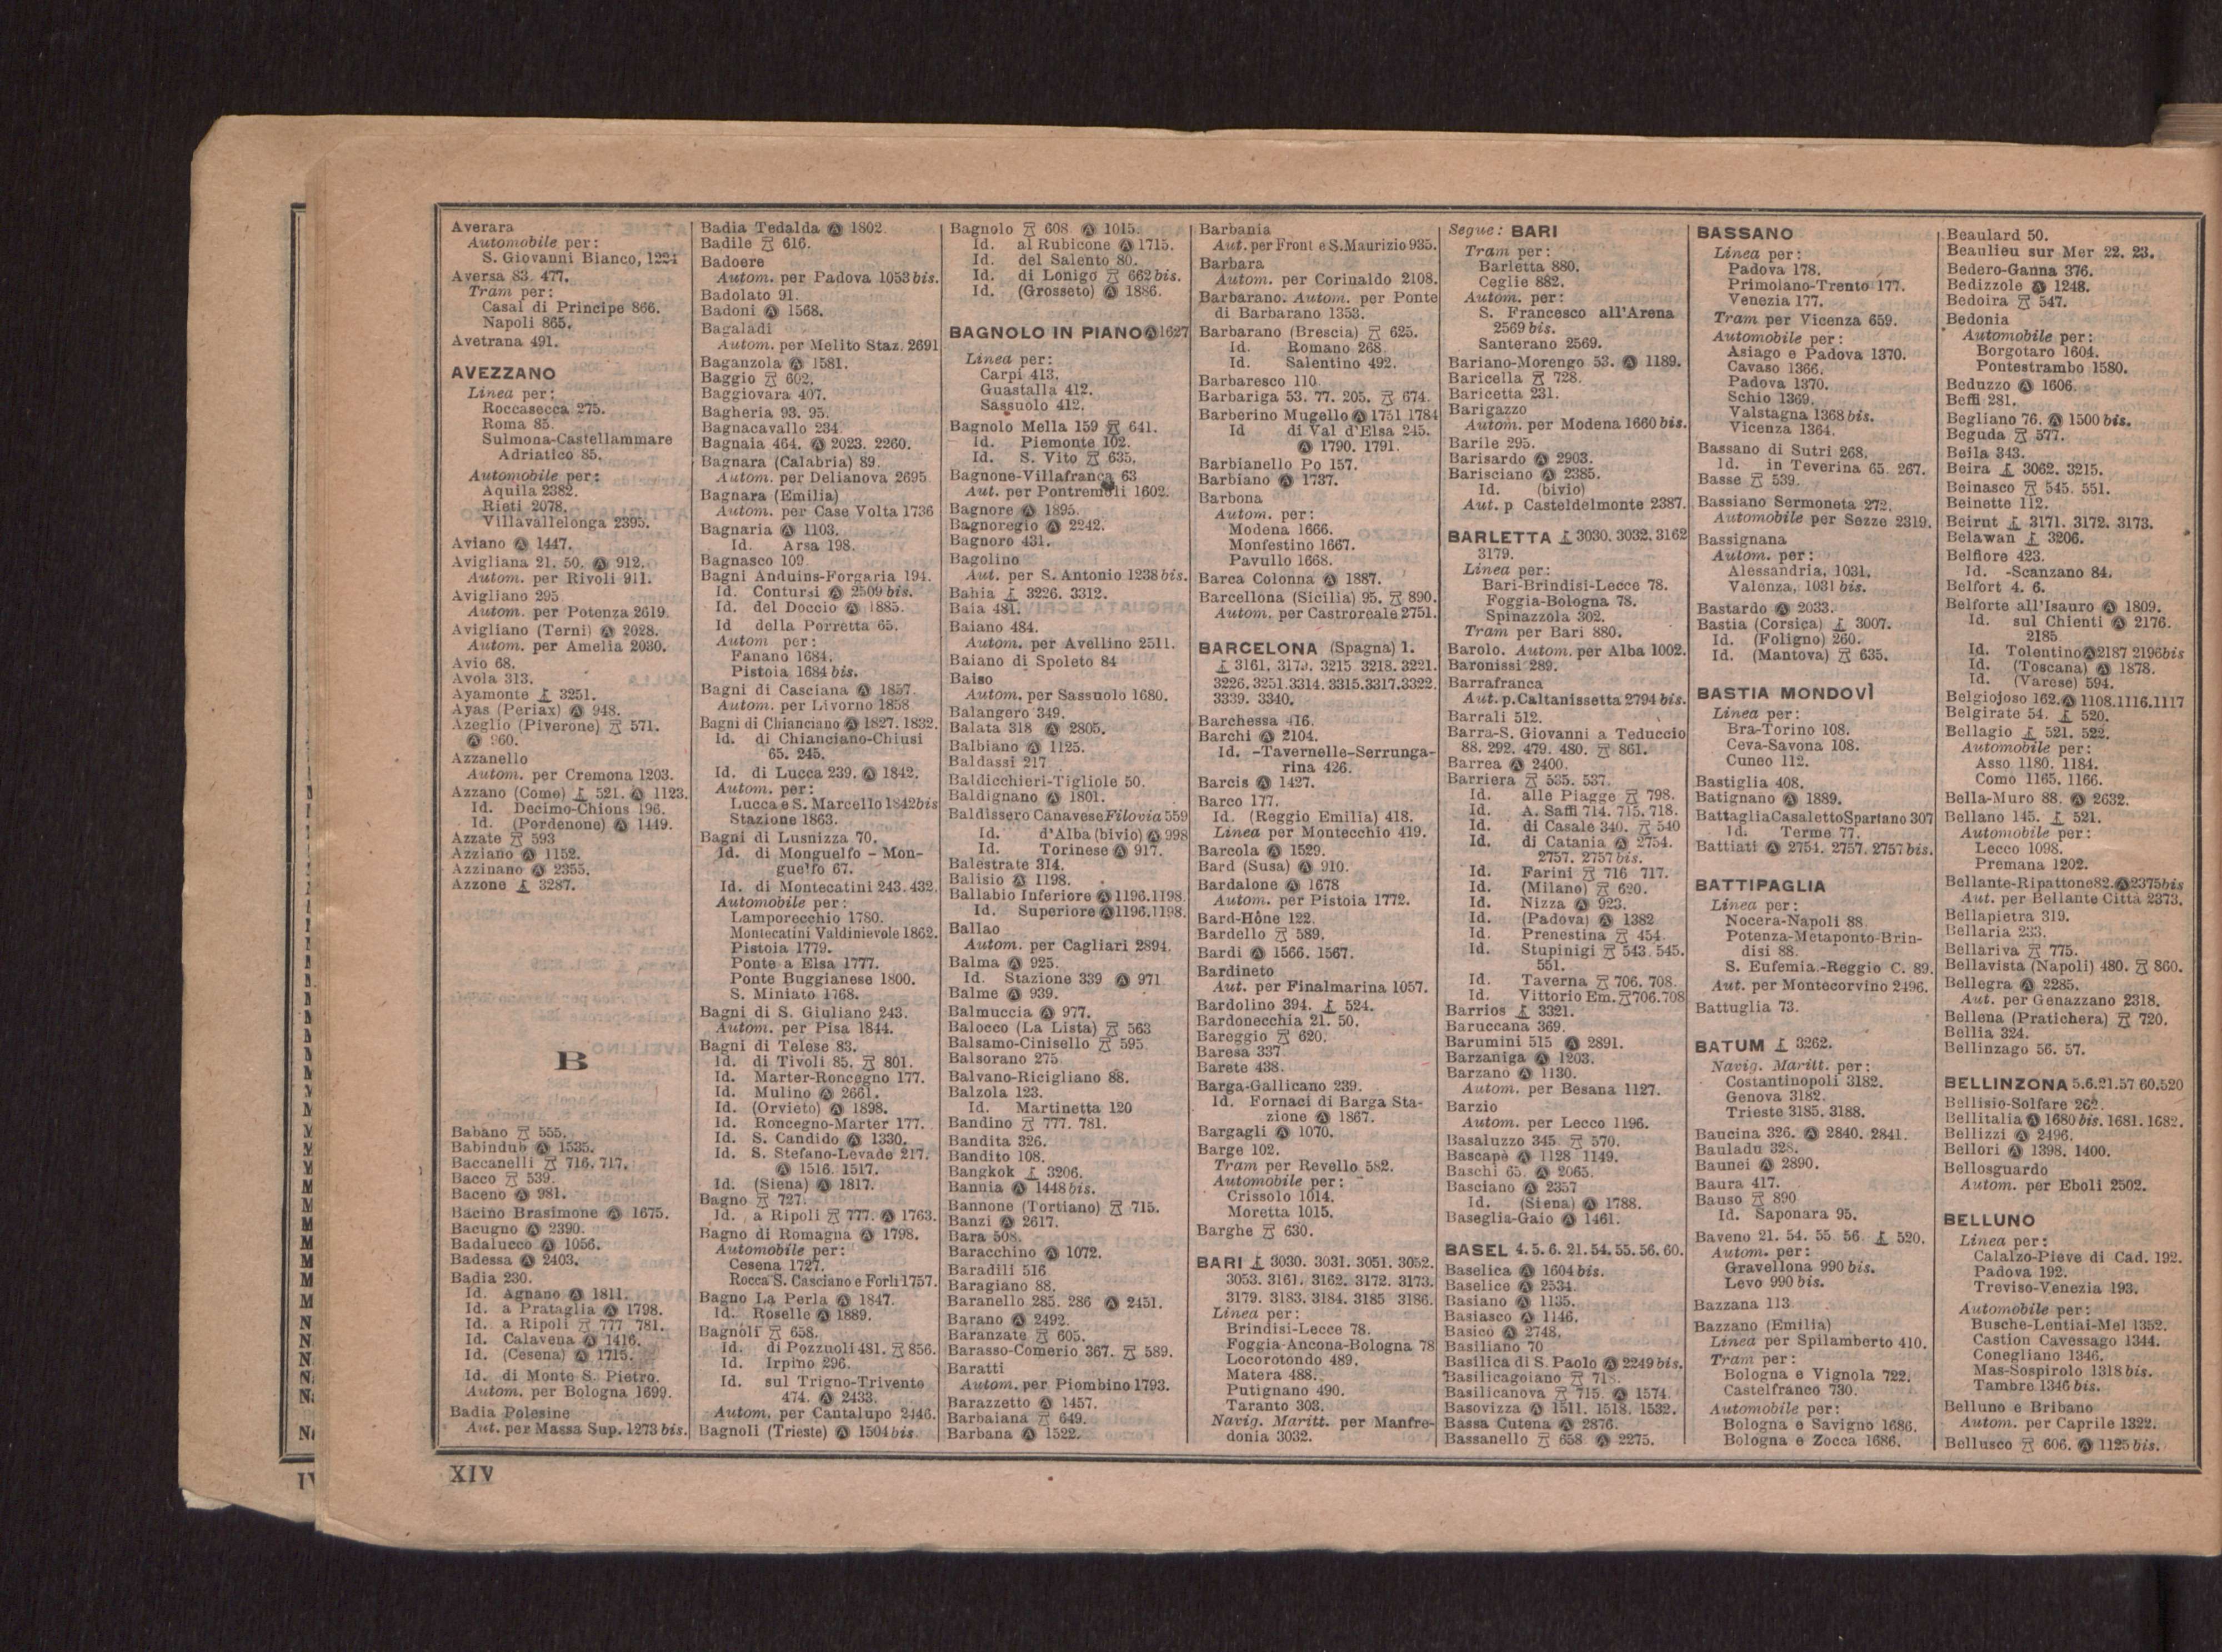 Averara
Automobile per:
S. Giovanni Bianco, 1224
Aversa 83. 477.
Tram per:
Casal di Principe 866.
Napoli 865.
Avetrana 491.
AVEZZANO
Linea per:
Roccasecca 275.
Roma 85.
Sulmona-Castellammare
Adriatico 85.
Automobile per:
Aquila 2382.
Rieti 2078.
Villavallelonga 2395.
Aviano Ⓐ 1447.
Avigliana 21. 50. Ⓐ 912.
Autom. per Rivoli 911.
Avigliano 295
Autom. per Potenza 2619.
Avigliano (Terni) Ⓐ 2028.
Autom. per Amelia 2030.
Avio 68.
Avola 313.
Ayamonte 3251.
Ayas (Periax) Ⓐ 948.
Azeglio (Piverone) 571.
Ⓐ 960.
Azzanello
Autom. per Cremona 1203.
Azzano (Como) 521. Ⓐ 1123.
Id. Decimo-Chions 196.
Id. (Pordenone) Ⓐ 1449.
Azzate 593
Azziano Ⓐ 1152.
Azzinano Ⓐ 2355.
Azzone 3287.
B
Babano 555.
Babindub Ⓐ 1535.
Baccanelli 716. 717.
Bacco 539.
Baceno Ⓐ 981.
Bacino Brasimone Ⓐ 1675.
Bacugno Ⓐ 2390.
Badalucco Ⓐ 1056.
Badessa Ⓐ 2403.
Badia 230.
Id. Agnano Ⓐ 1811.
Id. a Prataglia Ⓐ 1798.
Id. a Ripoli 777 781.
Id. Calavena Ⓐ 1416.
Id. (Cesena) Ⓐ 1715.
Id. di Monte S. Pietro.
Autom. per Bologna 1699.
Badia Polesine
Aut. per Massa Sup. 1273 bis.
Badia Tedalda Ⓐ 1802.
Badile 616.
Badoere
Autom. per Padova 1053 bis.
Badolato 91.
Badoni Ⓐ 1568.
Bagaladi
Autom. per Melito Staz. 2691
Baganzola Ⓐ 1581.
Baggio 602.
Baggiovara 407.
Bagheria 93. 95.
Bagnacavallo 234.
Bagnaia 464. Ⓐ 2023. 2260.
Bagnara (Calabria) 89.
Autom. per Delianova 2695
Bagnara (Emilia)
Autom. per Case Volta 1736
Bagnaria Ⓐ 1103.
Id. Arsa 198.
Bagnasco 109.
Bagni Anduins-Forgaria 194.
Id. Contursi Ⓐ 2509 bis.
Id. del Doccio Ⓐ 1885.
Id della Porretta 65.
Autom per:
Fanano 1684.
Pistoia 1684 bis.
Bagni di Casciana Ⓐ 1857.
Autom. per Livorno 1858
Bagni di Chianciano Ⓐ 1827. 1832.
Id. di Chianciano-Chiusi
65. 245.
Id. di Lucca 239. Ⓐ 1842.
Autom. per:
Lucca e S. Marcello 1842 bis
Stazione 1863.
Bagni di Lusnizza 70.
Id. di Monguelfo – Mon-
guelfo 67.
Id. di Montecatini 243. 432.
Automobile per:
Lamporecchio 1780.
Montecatini Valdinievole 1862.
Pistoia 1779.
Ponte a Elsa 1777.
Ponte Buggianese 1800.
S. Miniato 1768.
Bagni di S. Giuliano 243.
Autom. per Pisa 1844.
Bagni di Telese 83.
Id. di Tivoli 85. 801.
Id. Marter-Roncegno 177.
Id. Mulino Ⓐ 2661.
Id. (Orvieto) Ⓐ 1898.
Id. Roncegno-Marter 177.
Id. S. Candido Ⓐ 1330.
Id. S. Stefano-Levade 217.
Ⓐ 1516. 1517.
Id. (Siena) Ⓐ 1817.
Bagno 727.
Id. a Ripoli 777. Ⓐ 1763.
Bagno di Romagna Ⓐ 1798.
Automobile per:
Cesena 1727.
Rocca S. Casciano e Forlì 1757.
Bagno La Perla Ⓐ 1847.
Id. Roselle Ⓐ 1889.
Bagnoli 658.
Id. di Pozzuoli 481. 856.
Id. Irpino 296.
Id. sul Trigno-Trivento
474. Ⓐ 2433.
Autom. per Cantalupo 2446.
Bagnoli (Trieste) Ⓐ 1504 bis
Bagnolo 608 Ⓐ 1015.
Id. al Rubicone Ⓐ 1715.
Id. del Salento 80.
Id. di Lonigo 662 bis.
Id. (Grosseto) Ⓐ 1886.
BAGNOLO IN PIANO Ⓐ 1627
Linea per:
Carpi 413.
Guastalla 412.
Sassuolo 412.
Bagnolo Mella 159 641.
Id. Piemonte 102.
Id. S. Vito 635.
Bagnone-Villafranca 63
Aut. per Pontremoli 1602.
Bagnore Ⓐ 1895.
Bagnoregio Ⓐ 2242.
Bagnoro 431.
Bagolino
Aut. per S. Antonio 1238 bis.
Bahia 3226. 3312.
Baia 481.
Baiano 484.
Autom. per Avellino 2511.
Baiano di Spoleto 84
Baiso
Autom. per Sassuolo 1680.
Balangero 349.
Balata 318 Ⓐ 2805.
Balbiano Ⓐ 1125.
Baldassi 217
Baldicchieri-Tigliole 50.
Baldignano Ⓐ 1801.
Baldissero Canavese Filovia 559
Id. d'Alba (bivio) Ⓐ 998
Id. Torinese Ⓐ 917.
Balestrate 314.
Balisio Ⓐ 1198.
Ballabio Inferiore Ⓐ 1196.1198.
Id. Superiore Ⓐ 1196.1198.
Ballao
Autom. per Cagliari 2894.
Balma Ⓐ 925.
Id. Stazione 339 Ⓐ 971
Balme Ⓐ 939.
Balmuccia Ⓐ 977.
Balocco (La Lista) 563
Balsamo-Cinisello 595.
Balsorano 275
Balvano-Ricigliano 88.
Balzola 123.
Id. Martinetta 120
Bandino 777. 781.
Bandita 326.
Bandito 108.
Bangkok 3206.
Bannia Ⓐ 1448 bis.
Bannone (Tortiano) 715.
Banzi Ⓐ 2617.
Bara 508.
Baracchino Ⓐ 1072.
Baradili 516
Baragiano 88.
Baranello 285. 286 Ⓐ 2451.
Barano Ⓐ 2492.
Baranzate 605.
Barasso-Comerio 367. 589.
Baratti
Autom. per Piombino 1793.
Barazzetto Ⓐ 1457.
Barbaiana 649.
Barbana Ⓐ 1522.
Barbania
Aut. per Front e S. Maurizio 935.
Barbara
Autom. per Corinaldo 2108.
Barbarano. Autom. per Ponte
di Barbarano 1353.
Barbarano (Brescia) 625.
Id. Romano 268.
Id. Salentino 492.
Barbaresco 110.
Barbariga 53. 77. 205. 674.
Barberino Mugello Ⓐ 1751 1784
Id di Val d'Elsa 245.
Ⓐ 1790. 1791.
Barbianello Po 157.
Barbiano Ⓐ 1737.
Barbona
Autom. per:
Modena 1666.
Monfestino 1667.
Pavullo 1668.
Barca Colonna Ⓐ 1887.
Barcellona (Sicilia) 95. 890.
Autom. per Castroreale 2751.
BARCELONA (Spagna) 1.
3161. 3179. 3215 3218. 3221.
3226. 3251. 3314. 3315. 3317. 3322.
3339. 3340.
Barchessa 416.
Barchi Ⓐ 2104.
Id. -Tavernelle-Serrunga-
rina 426.
Barcis Ⓐ 1427.
Barco 177.
Id. (Reggio Emilia) 418.
Linea per Montecchio 419.
Barcola Ⓐ 1529.
Bard (Susa) Ⓐ 910.
Bardalone Ⓐ 1678
Autom. per Pistoia 1772.
Bard-Hône 122.
Bardello 589.
Bardi Ⓐ 1566. 1567.
Bardineto
Aut. per Finalmarina 1057.
Bardolino 394. 524.
Bardonecchia 21. 50.
Bareggio 620.
Baresa 337
Barete 438.
Barga-Gallicano 239.
Id. Fornaci di Barga Sta-
zione Ⓐ 1867.
Bargagli Ⓐ 1070.
Barge 102.
Tram per Revello 582.
Automobile per:
Crissolo 1014.
Moretta 1015.
Barghe 630.
BARI 3030. 3031. 3051. 3052.
3053. 3161. 3162. 3172. 3173.
3179. 3183. 3184. 3185 3186.
Linea per:
Brindisi-Lecce 78.
Foggia-Ancona-Bologna 78
Locorotondo 489.
Matera 488.
Putignano 490.
Taranto 303.
Navig. Maritt. per Manfre-
donia 3032.
Segue: BARI
Tram per:
Barletta 880.
Ceglie 882.
Autom. per:
S. Francesco all'Arena
2569 bis.
Santerano 2569.
Bariano-Morengo 53. Ⓐ 1189.
Baricella 728.
Baricetta 231.
Barigazzo
Autom. per Modena 1660 bis.
Barile 295.
Barisardo Ⓐ 2903.
Barisciano Ⓐ 2385.
Id. (bivio)
Aut. p Casteldelmonte 2387.
BARLETTA 3030. 3032. 3162
3179.
Linea per:
Bari-Brindisi-Lecce 78.
Foggia-Bologna 78.
Spinazzola 302.
Tram per Bari 880.
Barolo. Autom. per Alba 1002.
Baronissi 289.
Barrafranca
Aut. p. Caltanissetta 2794 bis.
Barrali 512.
Barra-S. Giovanni a Teduccio
88. 292. 479. 480. 861.
Barrea Ⓐ 2400.
Barriera 535. 537.
Id. alle Piagge 798.
Id. A. Saffi 714. 715. 718.
Id. di Casale 340. 540
Id. di Catania Ⓐ 2754.
2757. 2757 bis.
Id. Farini 716 717.
Id. (Milano) 620.
Id. Nizza Ⓐ 923.
Id. (Padova) Ⓐ 1382
Id. Prenestina 454.
Id. Stupinigi 543. 545.
551.
Id. Taverna 706. 708.
Id. Vittorio Em. 706.708
Barrios 3321.
Baruccana 369.
Barumini 515 Ⓐ 2891.
Barzaniga Ⓐ 1203.
Barzanò Ⓐ 1130.
Autom. per Besana 1127.
Barzio
Autom. per Lecco 1196.
Basaluzzo 345. 570.
Bascapè Ⓐ 1128 1149.
Baschi 65. Ⓐ 2065.
Basciano Ⓐ 2357
Id. (Siena) Ⓐ 1788.
Baseglia-Gaio Ⓐ 1461.
BASEL 4. 5. 6. 21. 54. 55. 56. 60.
Baselica Ⓐ 1604 bis.
Baselice Ⓐ 2534.
Basiano Ⓐ 1135.
Basiasco Ⓐ 1146.
Basicò Ⓐ 2748.
Basiliano 70
Basilica di S. Paolo Ⓐ 2249 bis.
Basilicagoiano 715.
Basilicanova 715. Ⓐ 1574.
Basovizza Ⓐ 1511. 1518. 1532.
Bassa Cutena Ⓐ 2876.
Bassanello 658 Ⓐ 2275.
BASSANO
Linea per:
Padova 178.
Primolano-Trento 177.
Venezia 177.
Tram per Vicenza 659.
Automobile per:
Asiago e Padova 1370.
Cavaso 1366.
Padova 1370.
Schio 1369.
Valstagna 1368 bis.
Vicenza 1364.
Bassano di Sutri 268.
Id. in Teverina 65. 267.
Basse 539.
Bassiano Sermoneta 272.
Automobile per Sezze 2319.
Bassignana
Autom. per:
Alessandria, 1031.
Valenza, 1031 bis.
Bastardo Ⓐ 2033.
Bastia (Corsica) 3007.
Id. (Foligno) 260.
Id. (Mantova) 635.
BASTIA MONDOVÌ
Linea per:
Bra-Torino 108.
Ceva-Savona 108.
Cuneo 112.
Bastiglia 408.
Batignano Ⓐ 1889.
Battaglia Casaletto Spartano 307
Id. Terme 77.
Battiati Ⓐ 2754. 2757. 2757 bis.
BATTIPAGLIA
Linea per:
Nocera-Napoli 88
Potenza-Metaponto-Brin-
disi 88.
S. Eufemia.-Reggio C. 89.
Aut. per Montecorvino 2496.
Battuglia 73.
BATUM 3262.
Navig. Maritt. per:
Costantinopoli 3182.
Genova 3182.
Trieste 3185. 3188.
Baucina 326. Ⓐ 2840. 2841.
Bauladu 328.
Baunei Ⓐ 2890.
Baura 417.
Bauso 890
Id. Saponara 95.
Baveno 21. 54. 55. 56 520.
Autom. per:
Gravellona 990 bis.
Levo 990 bis.
Bazzana 113
Bazzano (Emilia)
Linea per Spilamberto 410.
Tram per:
Bologna e Vignola 722.
Castelfranco 730.
Automobile per:
Bologna e Savigno 1686.
Bologna e Zocca 1686.
Beaulard 50.
Beaulieu sur Mer 22. 23.
Bedero-Ganna 376.
Bedizzole Ⓐ 1248.
Bedoira 547.
Bedonia
Automobile per:
Borgotaro 1604.
Pontestrambo 1580.
Beduzzo Ⓐ 1606.
Beffi 281.
Begliano 76. Ⓐ 1500 bis.
Beguda 577.
Beila 343.
Beira 3062. 3215.
Beinasco 545. 551.
Beinette 112.
Beirut 3171. 3172. 3173.
Belawan 3206.
Belfiore 423.
Id. -Scanzano 84.
Belfort 4. 6.
Belforte all'Isauro Ⓐ 1809.
Id. sul Chienti Ⓐ 2176.
2185
Id. Tolentino Ⓐ 2187 2196 bis
Id. (Toscana) Ⓐ 1878.
Id. (Varese) 594.
Belgiojoso 162. Ⓐ 1108.1116.1117
Belgirate 54. 520.
Bellagio 521. 522.
Automobile per:
Asso 1180. 1184.
Como 1165. 1166.
Bella-Muro 88. Ⓐ 2632.
Bellano 145. 521.
Automobile per:
Lecco 1098.
Premana 1202.
Bellante-Ripattone 82. Ⓐ 2375 bis
Aut. per Bellante Città 2373.
Bellapietra 319.
Bellaria 233.
Bellariva 775.
Bellavista (Napoli) 480. 860.
Bellegra Ⓐ 2285.
Aut. per Genazzano 2318.
Bellena (Pratichera) 720.
Bellia 324.
Bellinzago 56. 57.
BELLINZONA 5.6.21.57 60.520
Bellisio-Solfare 262.
Bellitalia Ⓐ 1680 bis. 1681. 1682.
Bellizzi Ⓐ 2496.
Bellori Ⓐ 1398. 1400.
Bellosguardo
Autom. per Eboli 2502.
BELLUNO
Linea per:
Calalzo-Pieve di Cad. 192.
Padova 192.
Treviso-Venezia 193.
Automobile per:
Busche-Lentiai-Mel 1352.
Castion Cavessago 1344.
Conegliano 1346.
Mas-Sospirolo 1318 bis.
Tambre 1346 bis.
Belluno e Bribano
Autom. per Caprile 1322.
Bellusco 606. Ⓐ 1125 bis.
XIV